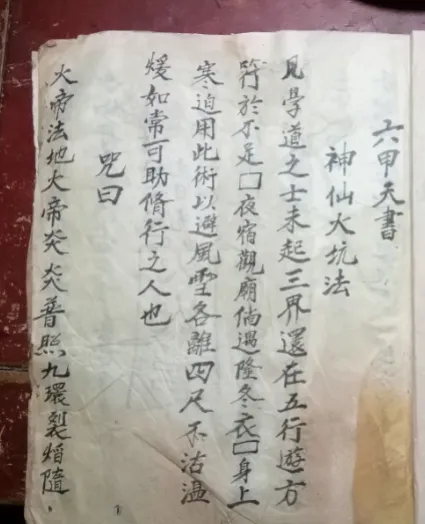 六甲天書
神仙火坑法
見學道之士未起三界還在五行遊方
符於不足□夜宿觀廟倘遇隆冬衣□身上
寒迫用此術以避風雪各離四尺不沾溫
煖如常可助脩行之人也
咒曰
火帝法地火帝炎炎普照九環裂焰隨